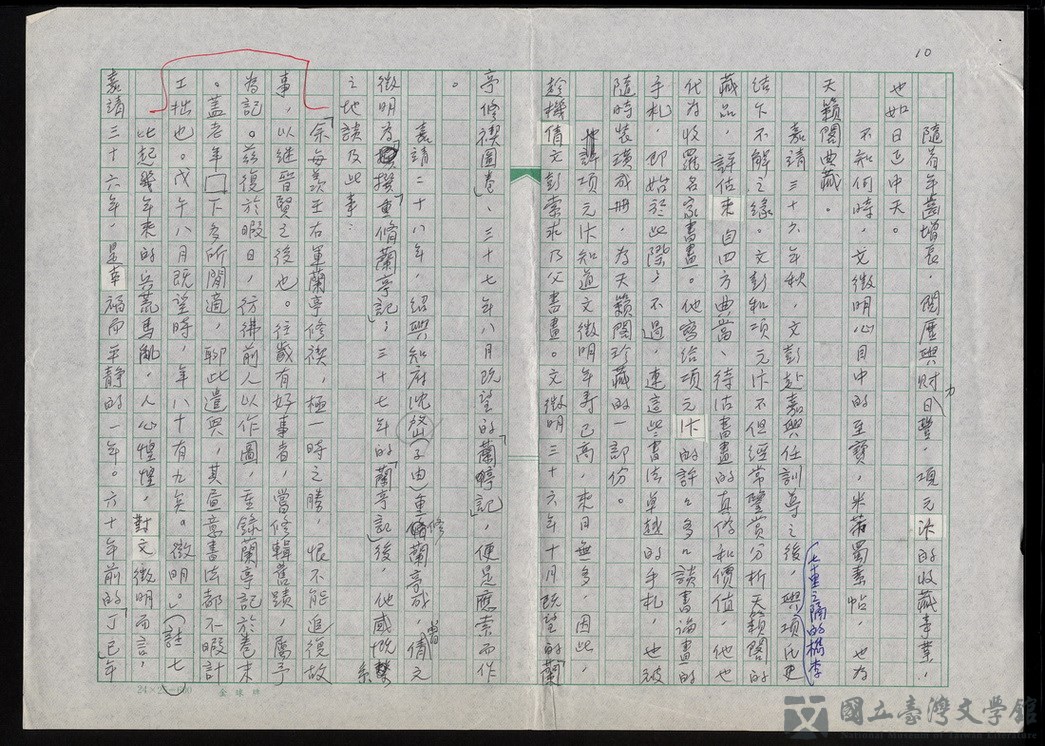 10
隨着年齒增長，閱歷與財力日豐，項元汴的收藏事業，
也如日正中天。
不知何時，文徵明心目中的至寶，米芾蜀素帖，也為
天籟閣典藏。
嘉靖三十六年秋，文彭赴嘉興任訓導之後，與項氏更
七十里之隔的檇李
結下不解之緣。文彭和項元汴不但經常鑒賞分析天籟閣的
藏品，評估來自四方典當、待沽書畫的真偽和價值，他也
代為收羅名家書畫。他寫給項元汴的許許多多談書論畫的
手札，即始於此際；不過，連這些書法卓越的手札，也被
隨時裝璜成冊，為天籟閣珍藏的一部份。
也許項元汴知道文徵明年壽已高，來日無多，因此，
趁機倩文彭索求乃父書畫。文徵明三十六年十月既望的「蘭
亭修禊圖卷」、三十七年八月既望的「蘭亭記」，便是應索而作
。
嘉請二十八年，紹興知府沈子由重修蘭亭成，曾倩文
徵明為撰「重脩蘭亭記」；三十七年的「蘭亭記」後，他感慨係
之地談及此事：
「余每羨王右軍蘭亭修禊，極一時之勝，恨不能追復故
事，以繼晉賢之後也。往歲有好事者，嘗修輯舊蹟，屬予
為記。茲復於暇日，彷彿前人以作圖，並錄蘭亭記於卷末
。蓋老年□下多所閒適，聊此遣興，其畫意書法都不暇計
工拙也。戊午八月既望時，年八十有九矣。徵明。」（註七）
比起幾年來的兵荒馬亂，人心惶惶，對文徵明而言，
嘉靖三十六年，是幸福而平靜的一年。六十年前的丁巳年
24×25=600
國立臺灣文學館
National Museum of Taiwan Literature